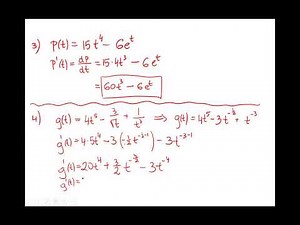 3) P(t) = 15t⁴ - 6eᵗ
P'(t) = dP/dt = 15·4t³ - 6eᵗ
= 60t³ - 6eᵗ
4) g(t) = 4t⁵ - 3/√t + 1/t³ ⇒ g(t) = 4t⁵ - 3t^(-½) + t⁻³
g'(t) = 4·5t⁴ - 3(-½t^(-½-1)) - 3t^(-3-1)
g'(t) = 20t⁴ + 3/2 t^(-3/2) - 3t⁻⁴
g'(t) =